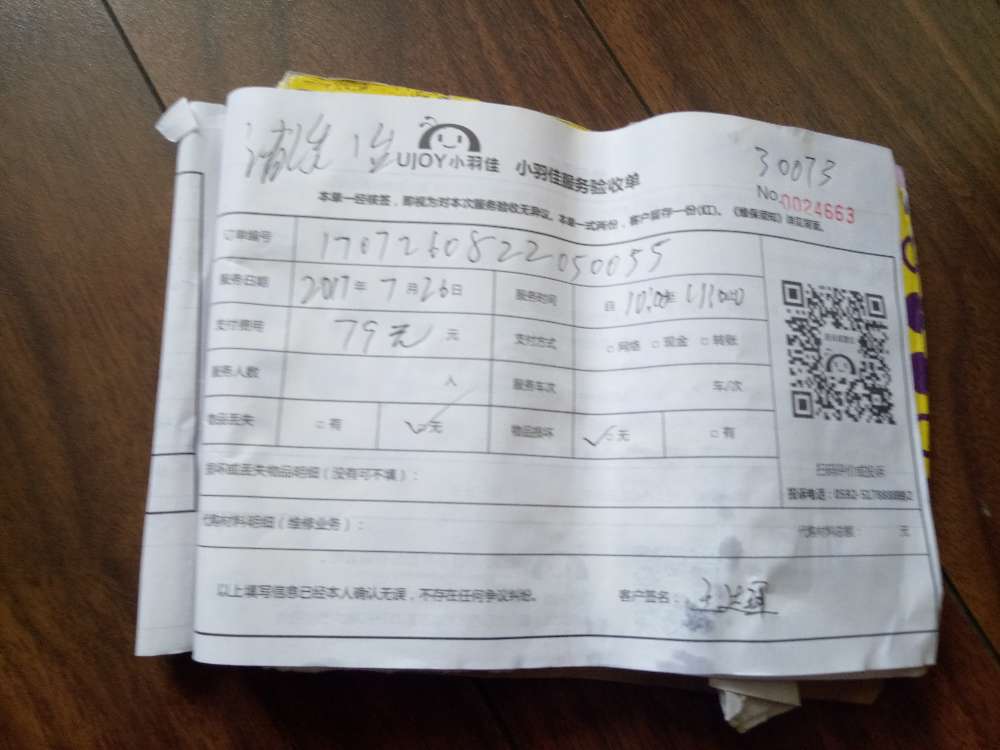 30073
UJOY小羽佳 小羽佳服务验收单
No.0024663
本单一经核签，即视为对本次服务验收无异议。本单一式两份，客户留存一份(红)。《维保须知》详见背面。
订单编号 1707260822050055
服务日期 2017年7月26日 服务时间 自10:00至11:00
支付费用 79元 元 支付方式 □网络 □现金 □转账
服务人数 人 服务车次 车/次
物品丢失 □有 ✓□无 物品损坏 ✓□无 □有
损坏或丢失物品明细（没有可不填）：
扫码评价或投诉
投诉电话：0592-5178888转2
代购材料明细（维修业务）： 代购材料总额： 元
以上填写信息已经本人确认无误，不存在任何争议纠纷。 客户签名：